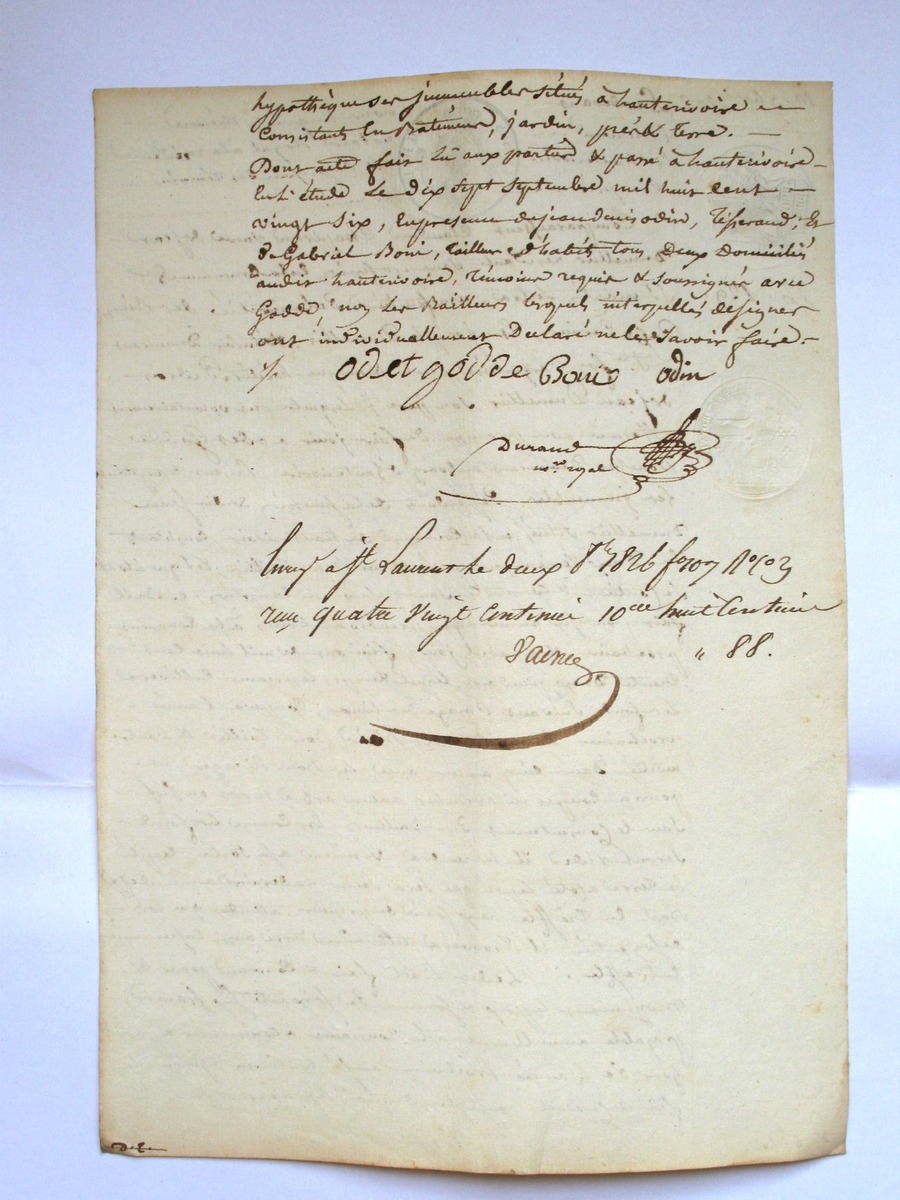 hypothèque ses immeubles situés à hauterivoire
Consistants En Batiments, jardin, prés & Terre. —
Dont acte fait lu aux parties & passé à hauterivoire
En l'étude Le dix sept septembre mil huit cent
vingt six, En presence de jean denis odin, Tisserand, Et
de Gabriel Boni, tailleur d'habits tous deux Domiciliés
audit hauterivoire, témoins requis & soussignés avec
Godde, non les Bailleurs lesquels interpellés de signer
ont individuellement Declaré ne le savoir faire. —
odet godde Boni odin
Durand
no.re royal
à St Laurent le deux 8bre 1826 fo 107
reçu quatre vingt Centimes 10eme huit Centimes
" 88.